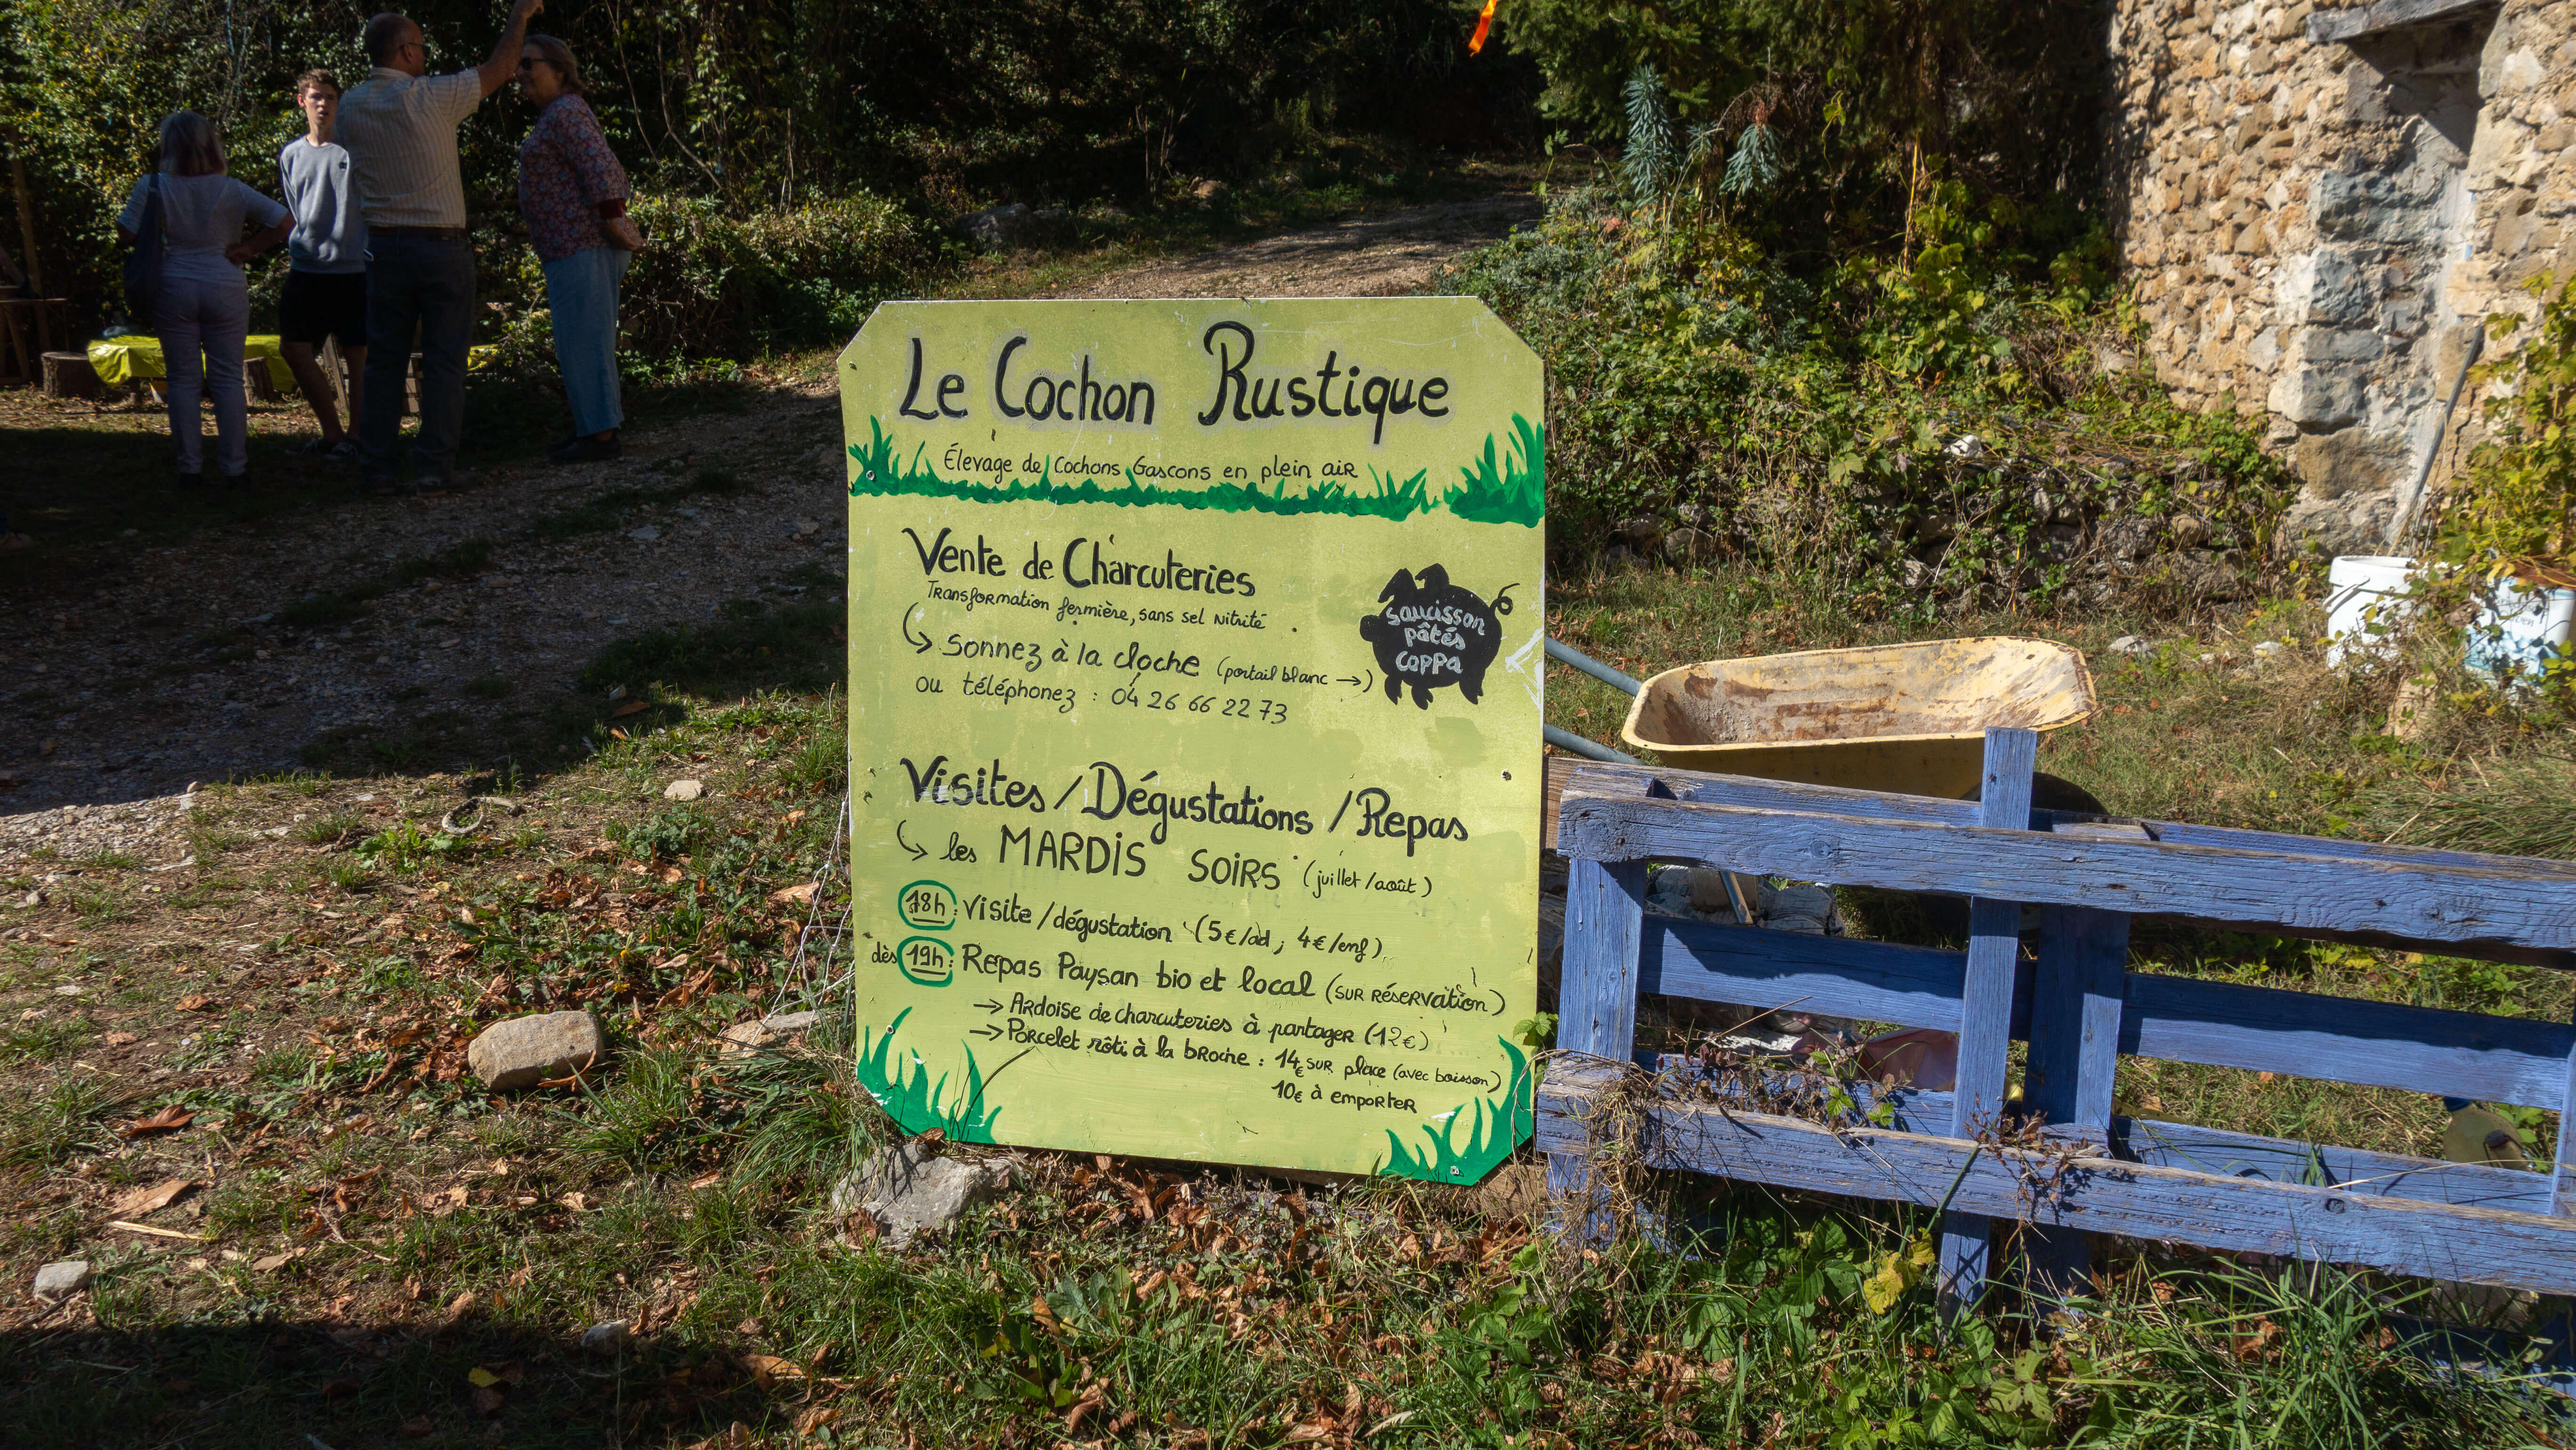 Le Cochon Rustique
Élevage de Cochons Gascons en plein air
Vente de Charcuteries
Transformation fermière, sans sel Nitrité
↪ Sonnez à la cloche (portail blanc →)
ou téléphonez : 04 26 66 22 73
saucisson
pâtés
coppa
Visites / Dégustations / Repas
↪ les MARDIS SOIRS (juillet/août)
18h : visite / dégustation (5€/ad ; 4€/enf)
dès 19h : Repas Paysan bio et local (sur réservation)
→ Ardoise de charcuteries à partager (12€)
→ Porcelet rôti à la broche : 14€ sur place (avec boisson)
10€ à emporter